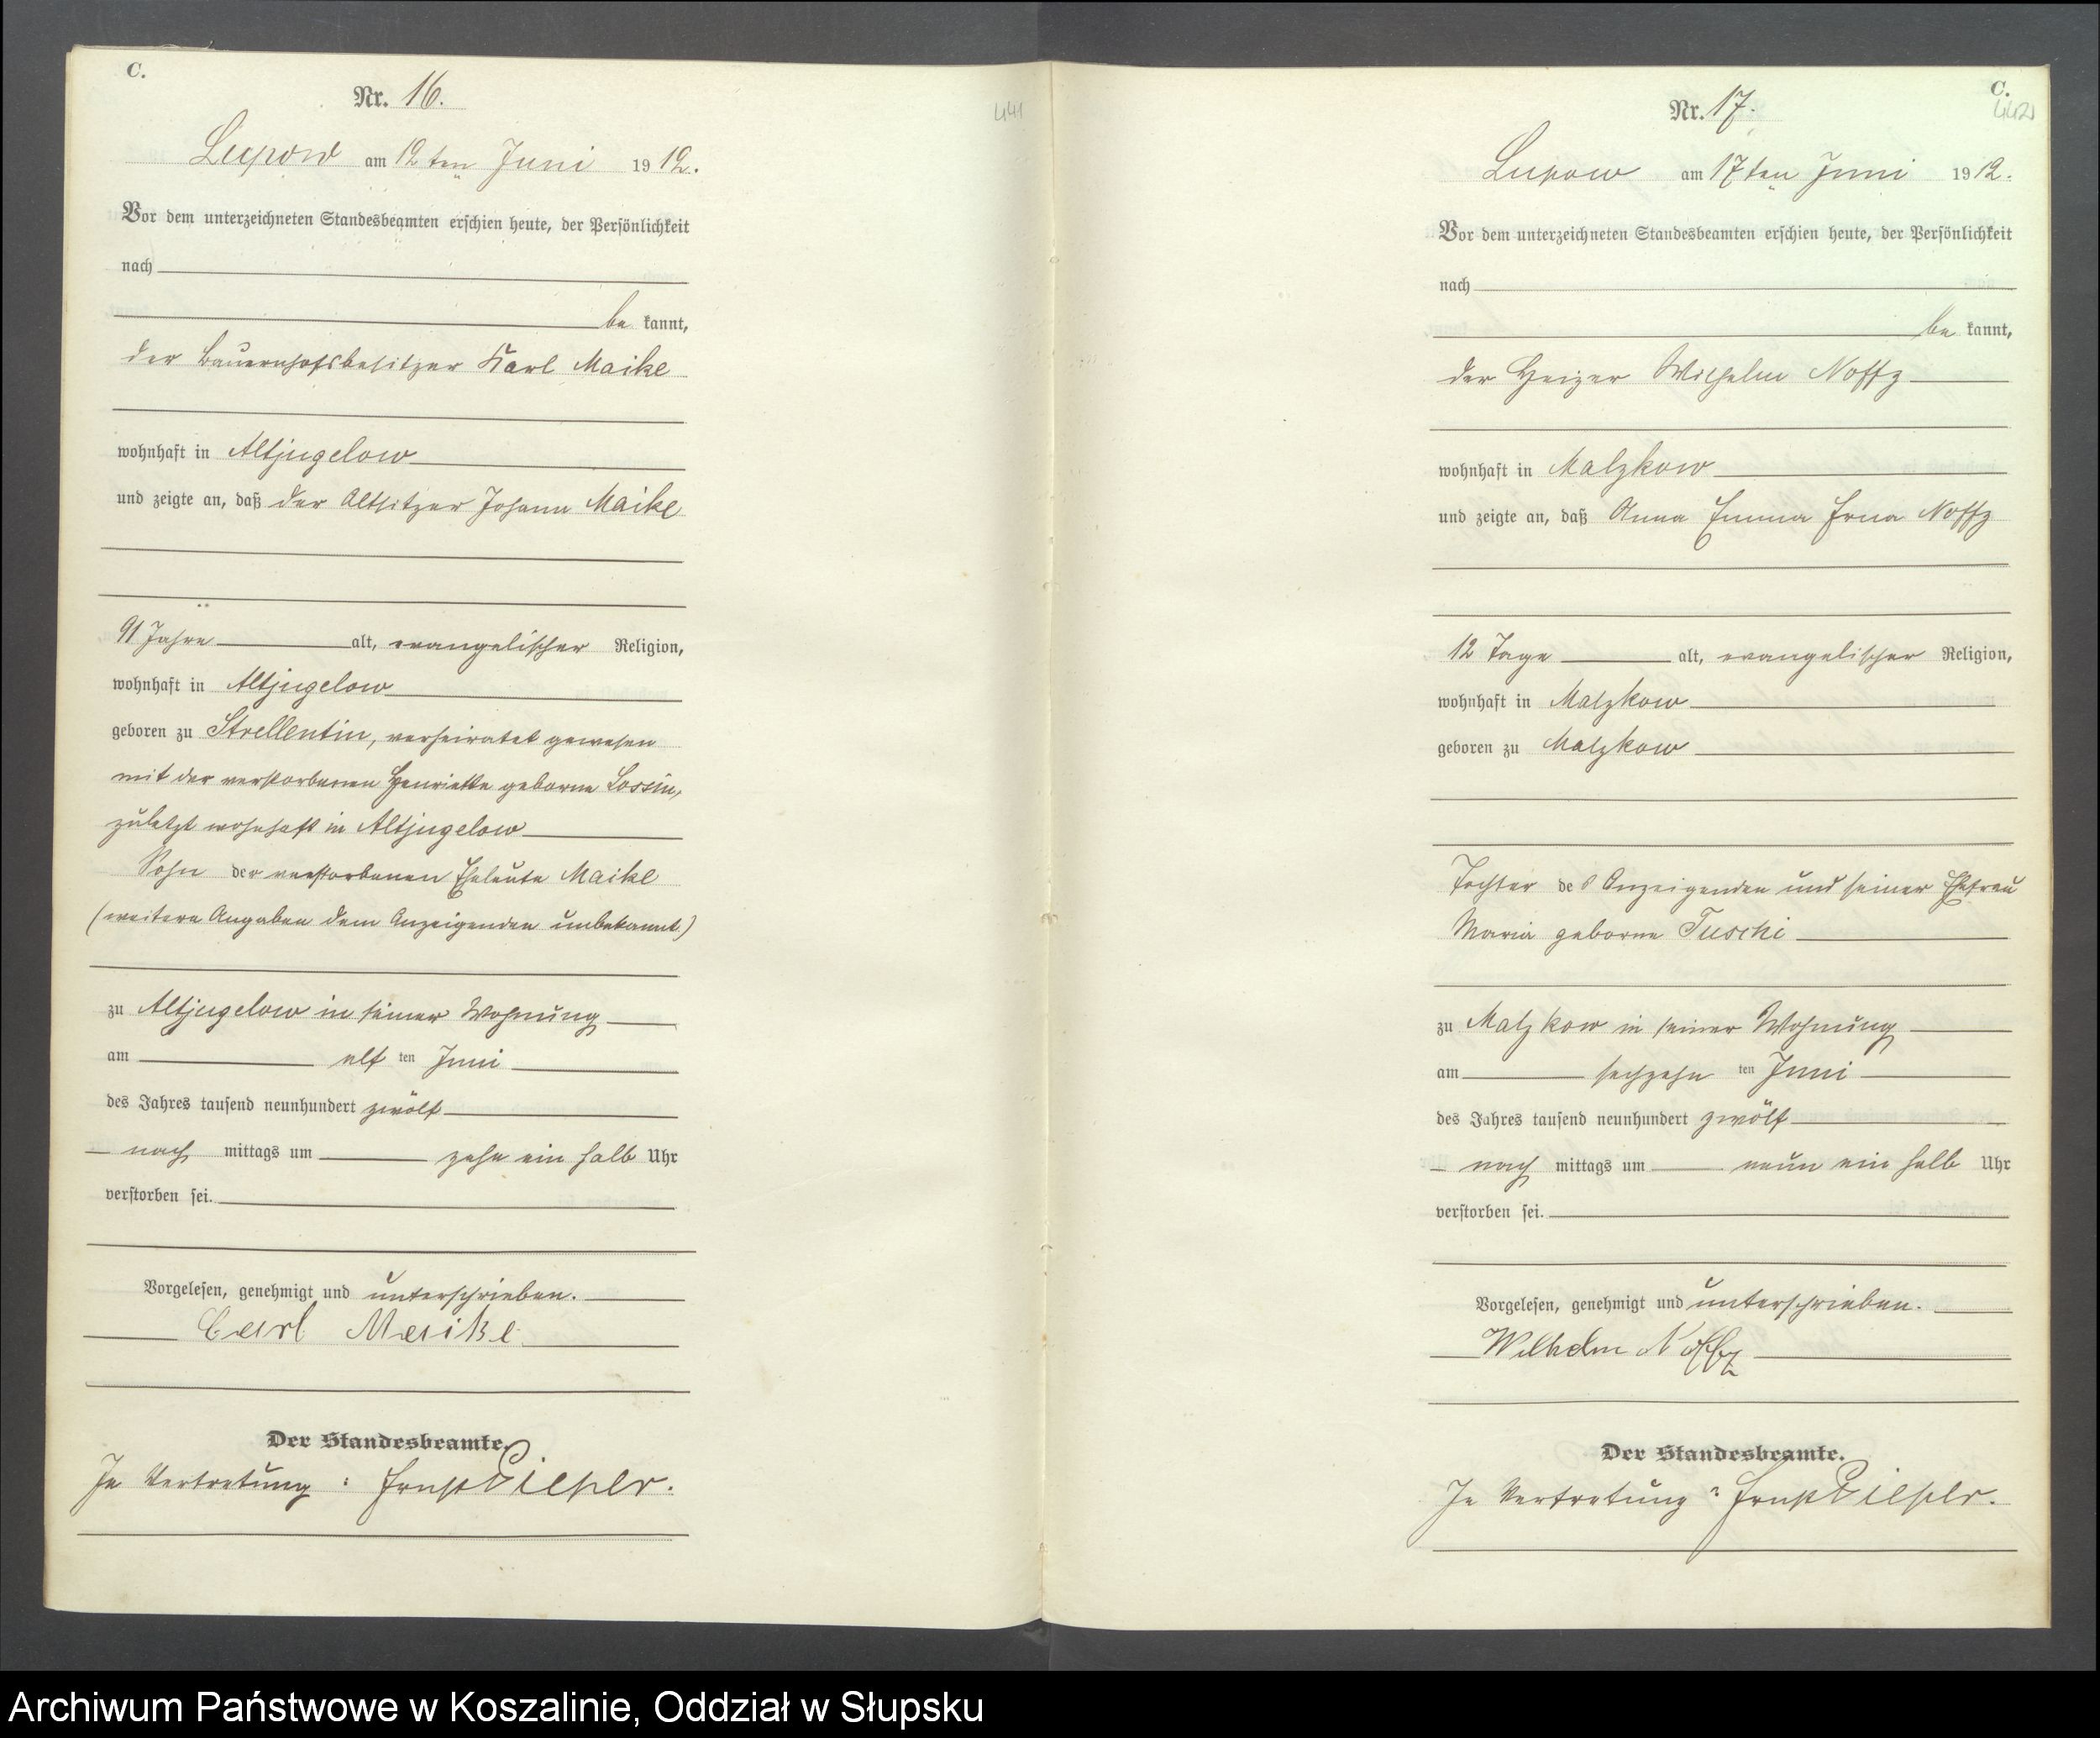 C.
Nr. 16.
441
Lupow am 12ten Juni 1912.
Vor dem unterzeichneten Standesbeamten erschien heute, der Persönlichkeit
nach
be kannt,
der Bauernhofsbesitzer Karl Maike
wohnhaft in Altjugelow
und zeigte an, daß der Altsitzer Johann Maike
91 Jahre alt, evangelischer Religion,
wohnhaft in Altjugelow
geboren zu Strellentin, verheiratet gewesen
mit der verstorbenen Henriette geborne Lossin,
zuletzt wohnhaft in Altjugelow
Sohn der verstorbenen Eheleute Maike
(weitere Angaben dem Anzeigenden unbekannt.)
zu Altjugelow in seiner Wohnung
am elf ten Juni
des Jahres tausend neunhundert zwölf
nach mittags um zehn ein halb Uhr
verstorben sei.
Vorgelesen, genehmigt und unterschrieben.
Carl Maike
Der Standesbeamte.
In Vertretung: Ernst
C.
442
Nr. 17.
Lupow am 17ten Juni 1912.
Vor dem unterzeichneten Standesbeamten erschien heute, der Persönlichkeit
nach
be kannt,
der Heizer Wilhelm Noffz
wohnhaft in Malzkow
und zeigte an, daß Anna Emma Erna Noffz
12 Tage alt, evangelischer Religion,
wohnhaft in Malzkow
geboren zu Malzkow
Tochter des Anzeigenden und seiner Ehefrau
Maria geborne Tuschi
zu Malzkow in seiner Wohnung
am sechzehn ten Juni
des Jahres tausend neunhundert zwölf
nach mittags um neun ein halb Uhr
verstorben sei.
Vorgelesen, genehmigt und unterschrieben.
Wilhelm Noffz
Der Standesbeamte.
In Vertretung: Ernst
Archiwum Państwowe w Koszalinie, Oddział w Słupsku